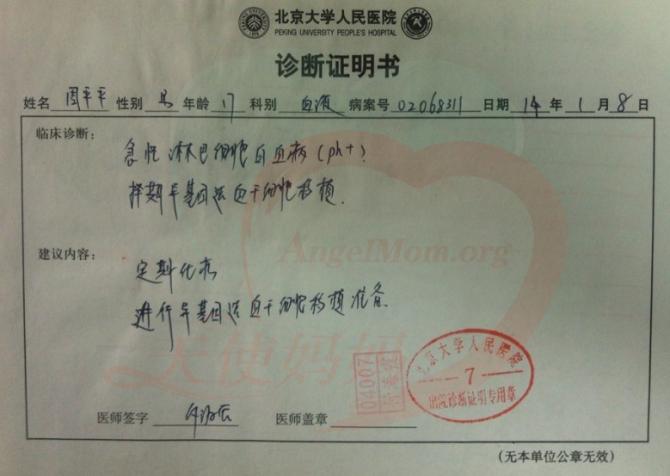 北京大学人民医院
PEKING UNIVERSITY PEOPLE'S HOSPITAL
诊断证明书
姓名 周平平 性别 男 年龄 17 科别 血液 病案号 02068311 日期 14 年 1 月 8 日
临床诊断：
急性淋巴细胞白血病（ph+）
择期异基因造血干细胞移植.
AngelMom.org
建议内容：
定期化疗
进行异基因造血干细胞移植准备.
天使妈妈
北京大学人民医院
7
出院诊断证明专用章
04007
医师签字
医师盖章
（无本单位公章无效）